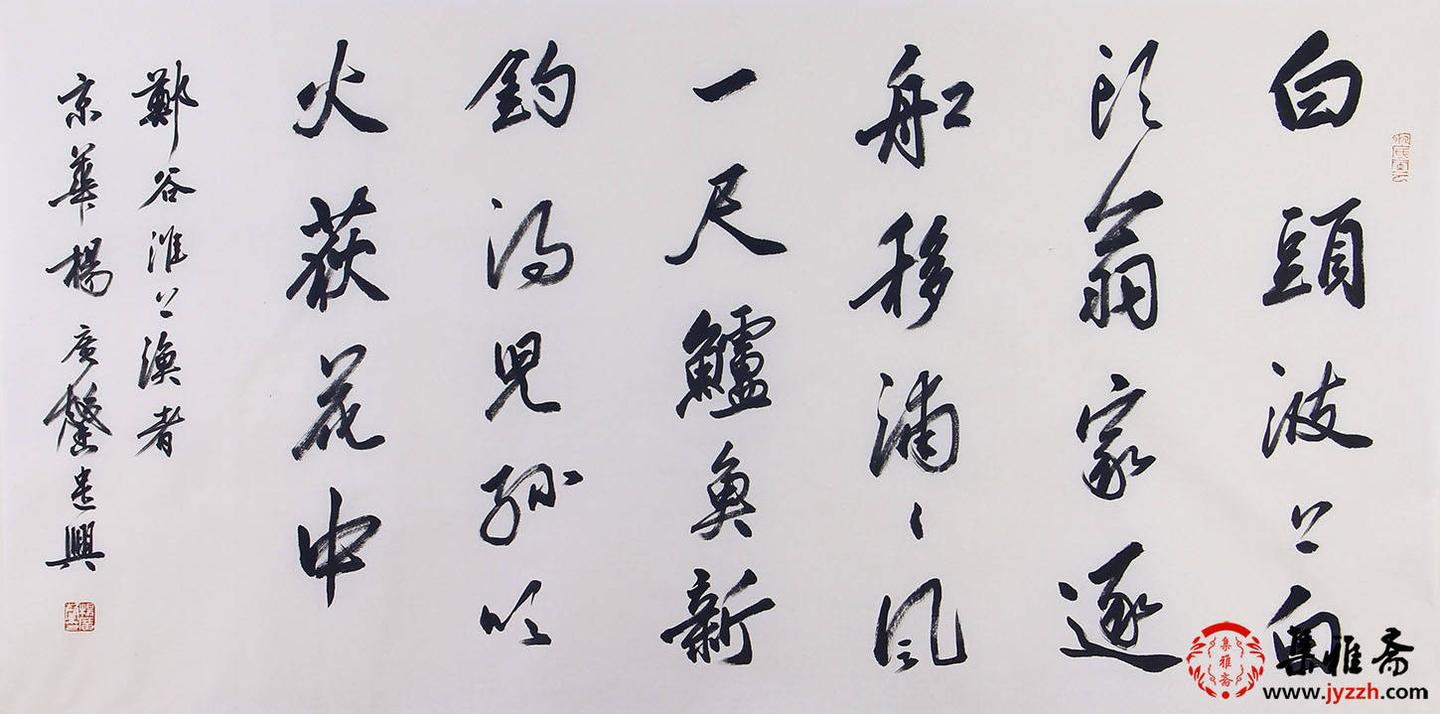 白頭波上白
頭翁家逐
船移浦〻風
一尺鱸魚新
釣得兒孫吹
火荻花中
鄭谷淮上漁者
京華楊廣馨遣興
集雅斋
集雅斋
www.jyzzh.com